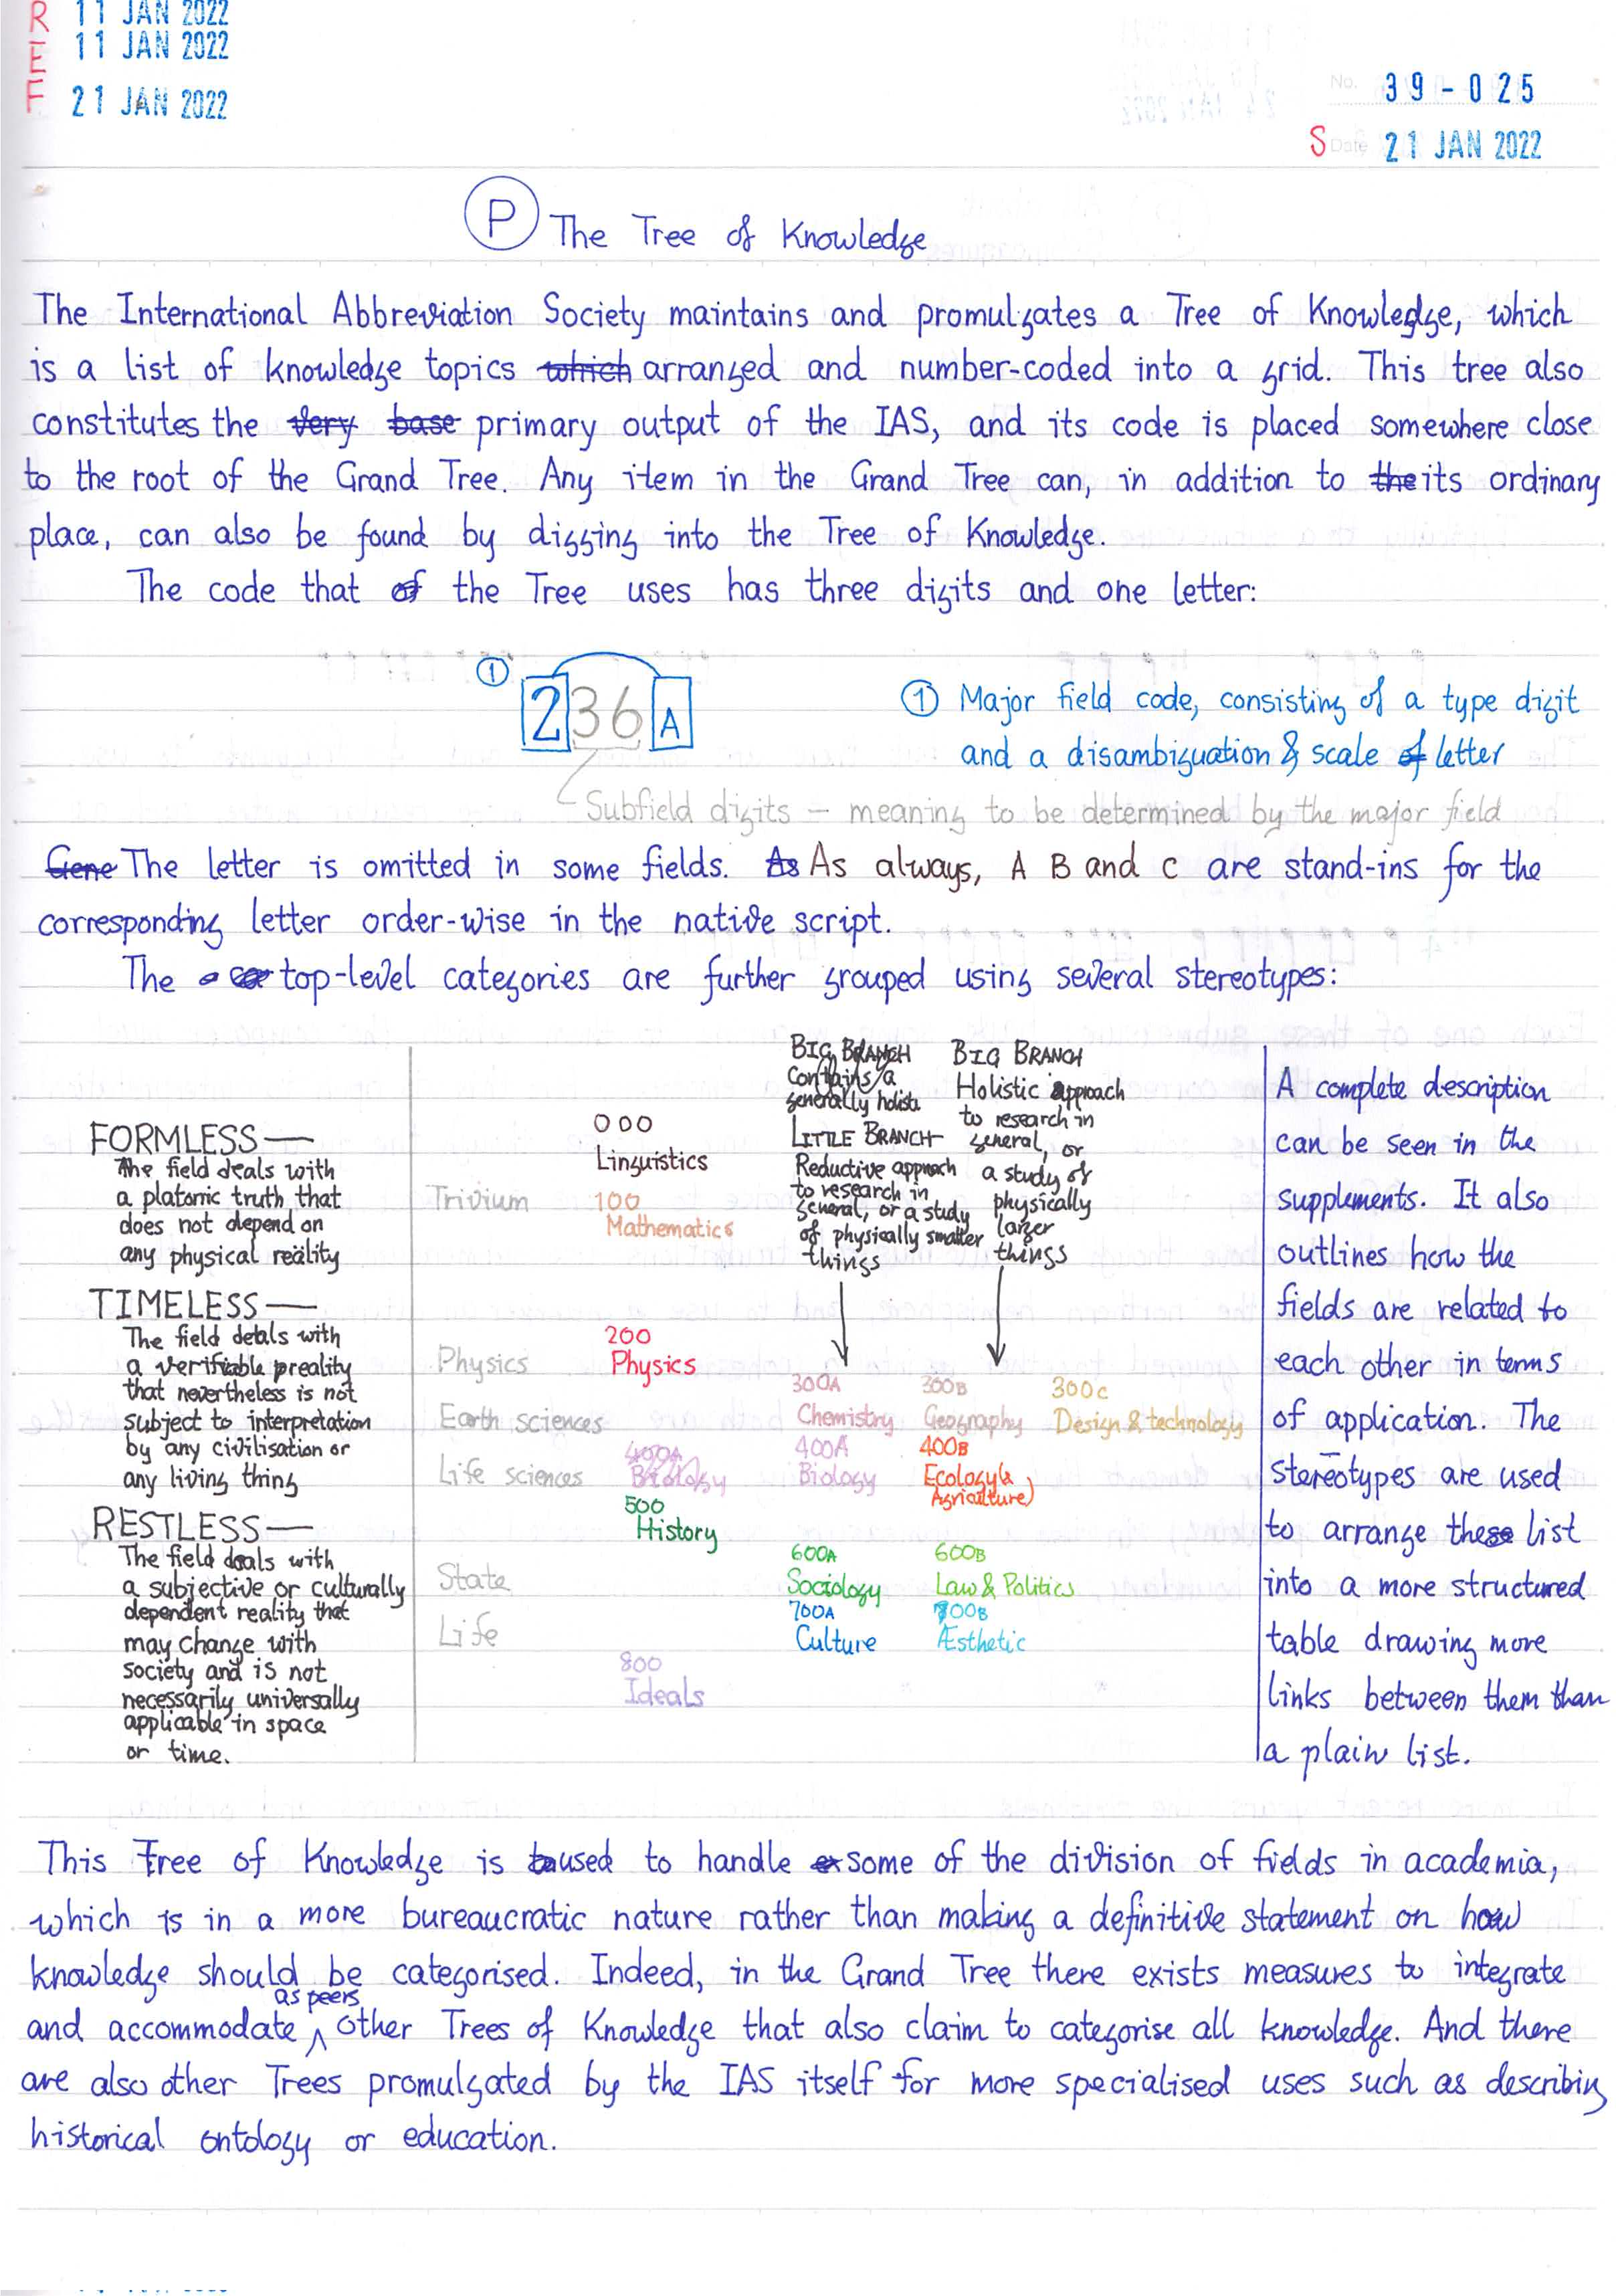 R
E
F
11 JAN 2022
11 JAN 2022
21 JAN 2022
No. 39-025
S Date 21 JAN 2022
P The Tree of Knowledge
The International Abbreviation Society maintains and promulgates a Tree of Knowledge, which
is a list of knowledge topics which arranged and number-coded into a grid. This tree also
constitutes the very base primary output of the IAS, and its code is placed somewhere close
to the root of the Grand Tree. Any item in the Grand Tree can, in addition to the its ordinary
place, can also be found by digging into the Tree of Knowledge.
The code that of the Tree uses has three digits and one letter:
① 236A
① Major field code, consisting of a type digit
and a disambiguation & scale of letter
Subfield digits – meaning to be determined by the major field
Gene The letter is omitted in some fields. As As always, A B and C are stand-ins for the
corresponding letter order-wise in the native script.
The top-level categories are further grouped using several stereotypes:
FORMLESS—
The field deals with
a platonic truth that
does not depend on
any physical reality
TIMELESS—
The field details with
a verifiable preality
that nevertheless is not
subject to interpretation
by any civilisation or
any living thing
RESTLESS—
The field deals with
a subjective or culturally
dependent reality that
may change with
society and is not
necessarily universally
applicable in space
or time.
Trivium
Physics
Earth sciences
Life sciences
State
Life
000
Linguistics
100
Mathematics
200
Physics
400A
Biology
500
History
800
Ideals
BIG BRANCH
Contains a
generally holistic
LITTLE BRANCH
Reductive approach
to research in
general, or a study
of physically smaller
things
BIG BRANCH
Holistic approach
to research in
general, or
a study of
physically
larger
things
300A
Chemistry
300B
Geography
300C
Design & technology
400A
Biology
400B
Ecology(&
Agriculture)
600A
Sociology
600B
Law & Politics
700A
Culture
700B
Æsthetic
A complete description
can be seen in the
supplements. It also
outlines how the
fields are related to
each other in terms
of application. The
stereotypes are used
to arrange these list
into a more structured
table drawing more
links between them than
a plain list.
This Tree of Knowledge is used to handle some of the division of fields in academia,
which is in a more bureaucratic nature rather than making a definitive statement on how
knowledge should be categorised. Indeed, in the Grand Tree there exists measures to integrate
as peers
and accommodate ∧ other Trees of Knowledge that also claim to categorise all knowledge. And there
are also other Trees promulgated by the IAS itself for more specialised uses such as describing
historical ontology or education.